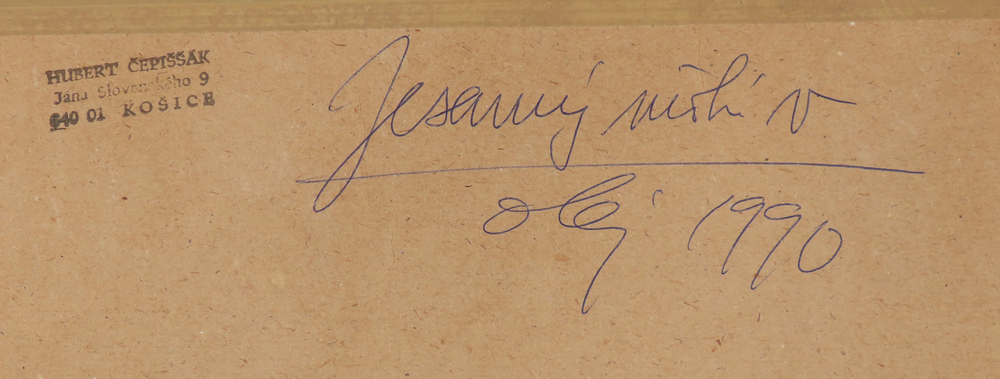 HUBERT ČEPIŠŠÁK
Jána Slovenského 9
040 01 KOŠICE
Jesenný
olej 1990